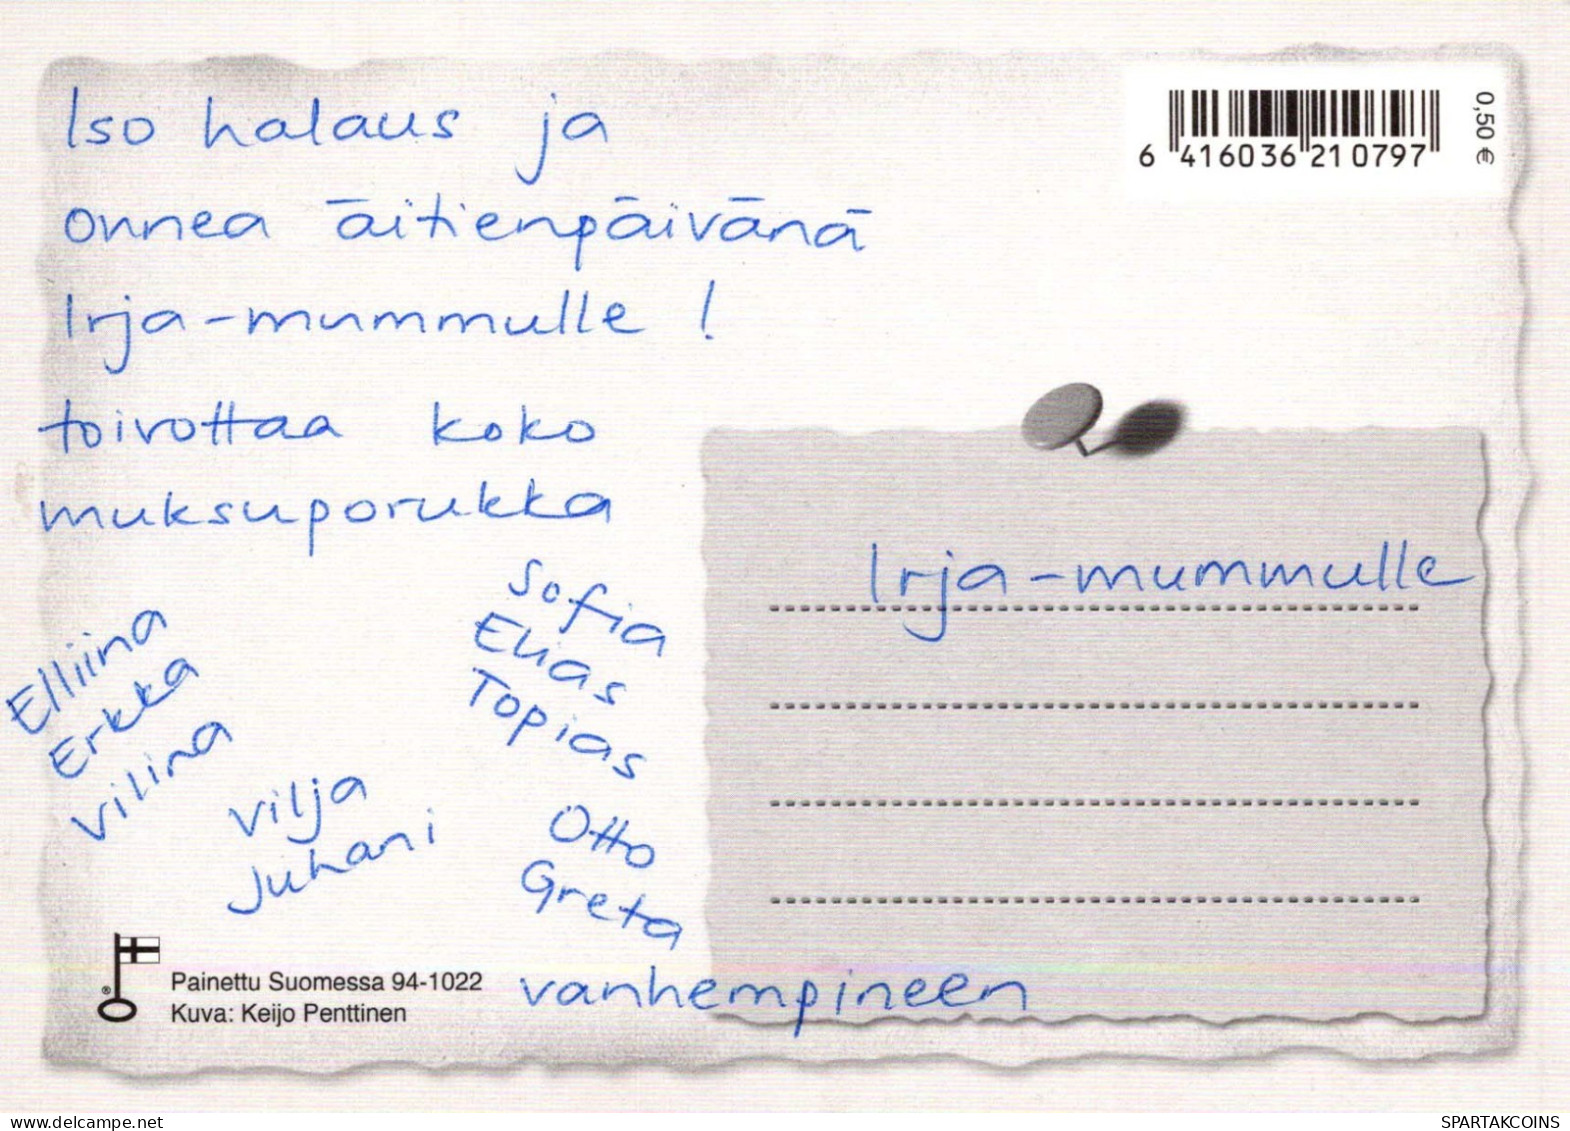 Iso halaus ja
onnea äitienpäivänä
Irja-mummulle !
toivottaa koko
muksuporukka
Elliina
Erkka
Vilina
Vilja
Juhani
Sofia
Elias
Topias
Otto
Greta
vanhempineen
Irja-mummulle
0,50 €
6 416036 210797
®
Painettu Suomessa 94-1022
Kuva: Keijo Penttinen
delcampe.net
SPARTAKCOINS